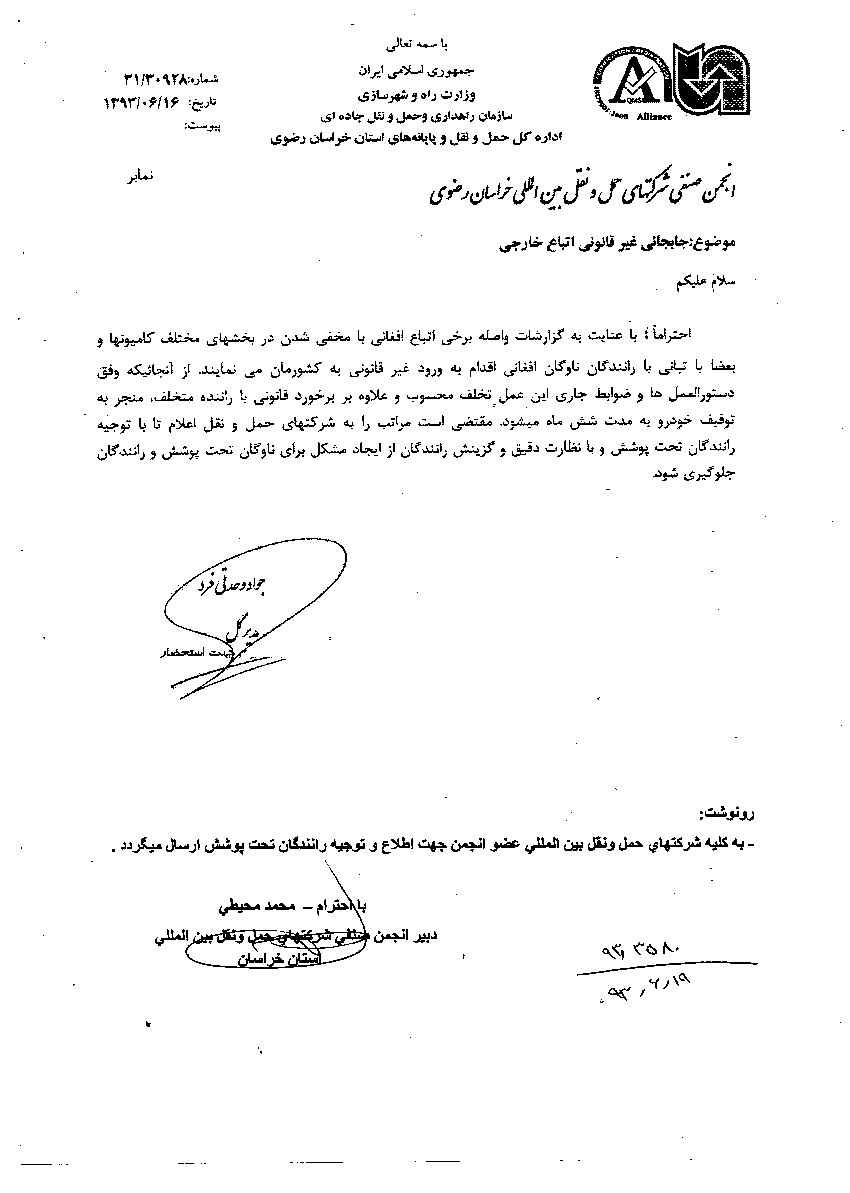 با سمه تعالی
جمهوری اسلامی ایران
وزارت راه و شهرسازی
سازمان راهداری وحمل و نقل جاده ای
اداره کل حمل و نقل و پایانه‌های استان خراسان رضوی
شماره: ۳۱/۳۰۹۲۸
تاریخ: ۱۳۹۳/۰۶/۱۶
پیوست:
نمابر
QMS
Alliance
انجمن صنفی شرکتهای حمل و نقل بین المللی خراسان رضوی
موضوع:جابجائی غیر قانونی اتباع خارجی
سلام علیکم
احتراماً؛ با عنایت به گزارشات واصله برخی اتباع افغانی با مخفی شدن در بخشهای مختلف کامیونها و
بعضا با تبانی با رانندگان ناوگان افغانی اقدام به ورود غیر قانونی به کشورمان می نمایند. از آنجائیکه وفق
دستورالعمل ها و ضوابط جاری این عمل تخلف محسوب و علاوه بر برخورد قانونی با راننده متخلف، منجر به
توقیف خودرو به مدت شش ماه میشود. مقتضی است مراتب را به شرکتهای حمل و نقل اعلام تا با توجیه
رانندگان تحت پوشش و با نظارت دقیق و گزینش رانندگان از ایجاد مشکل برای ناوگان تحت پوشش و رانندگان
جلوگیری شود.
جواد وحدتی فرد
مدیر کل
جهت استحضار
رونوشت:
- به کلیه شرکتهاي حمل ونقل بین المللي عضو انجمن جهت اطلاع و توجیه رانندگان تحت پوشش ارسال میگردد .
با احترام – محمد محیطي
دبیر انجمن صنفي شرکتهاي حمل ونقل بین المللي
استان خراسان
۹۳٫۳۵۸۰
۹۳٫۶٫۱۹